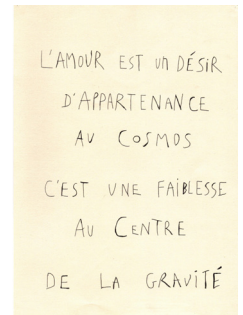 L'AMOUR EST un DÉSIR
D'APPARTENANCE
AU COSMOS
C'EST UNE FAIBLESSE
AU CENTRE
DE LA GRAVITÉ